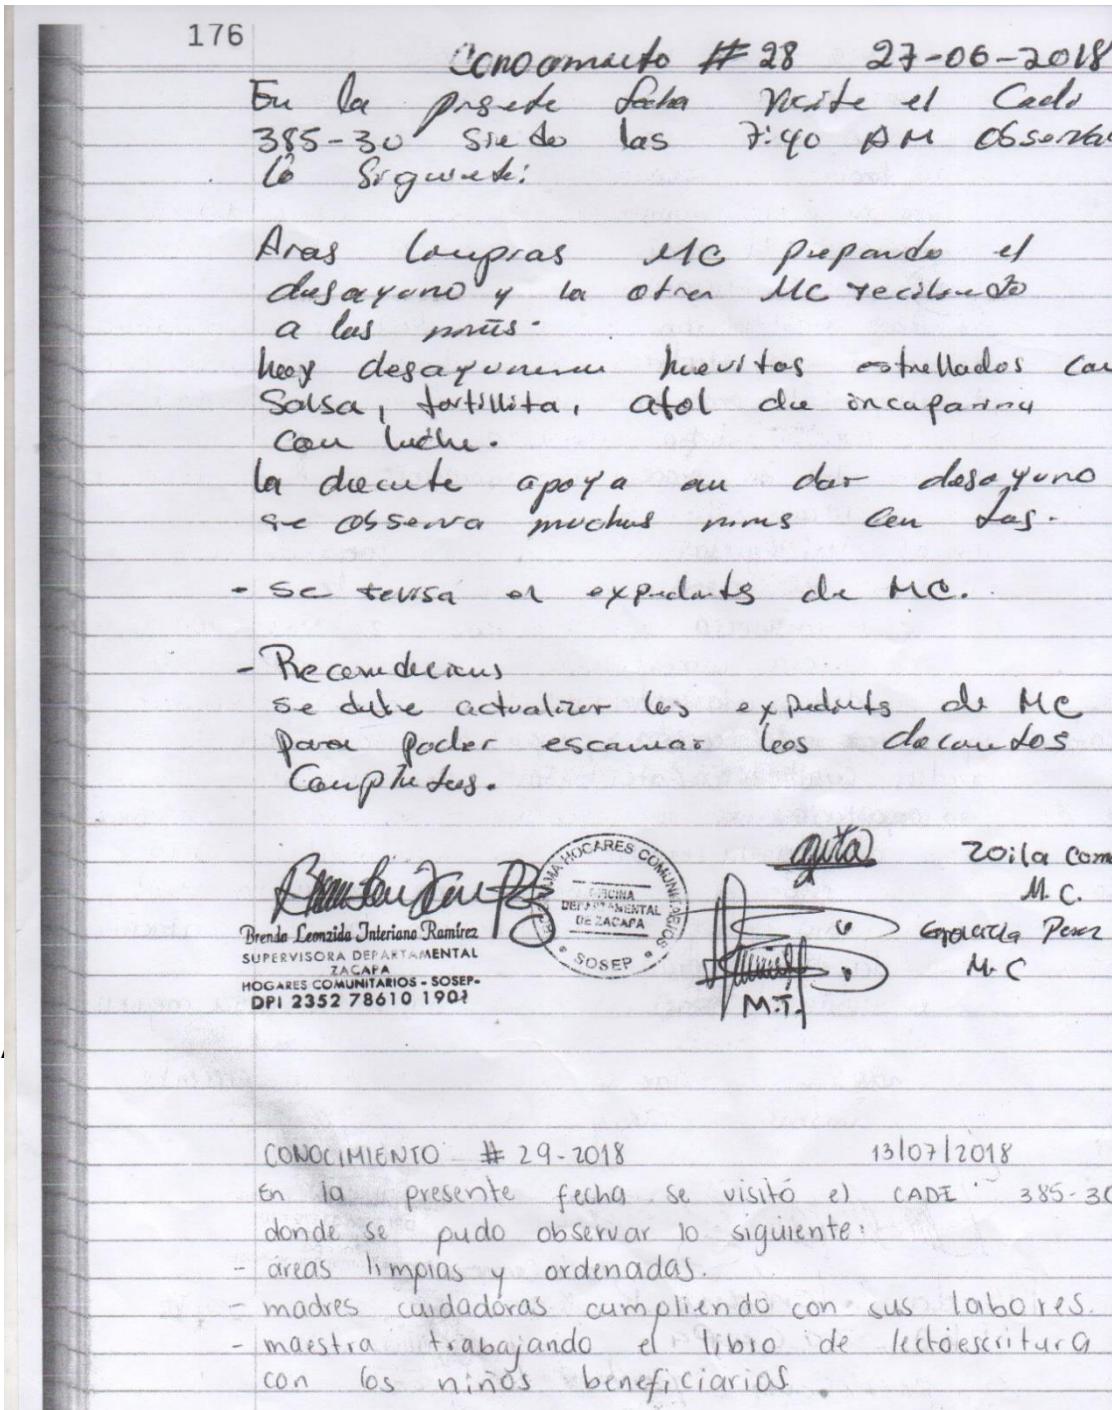 176
Conocimiento # 28 27-06-2018
En la presente fecha visite el Cadi
385-30 Siendo las 7:40 AM Observar
lo Siguiente:
Areas Limpias MC preparando el
desayuno y la otra MC recibiendo
a los niños.
hoy desayunaran huevitos estrellados con
Salsa, tortillita, atol de incaparina
con leche.
la docente apoya en dar desayuno
se observa muchos niños con tos.
- se revisa el expedientes de MC.
- Recomendaciones
se debe actualizar los expedientes de MC
para poder escanear los documentos
Completos.
PROGRAMA HOGARES COMUNITARIOS
OFICINA
DEPARTAMENTAL
DE ZACAPA
SOSEP
Zoila
M.C.
Perez
M.C
M.T.
Brenda Leonzida Interiano Ramírez
SUPERVISORA DEPARTAMENTAL
ZACAPA
HOGARES COMUNITARIOS - SOSEP-
DPI 2352 78610 1901
CONOCIMIENTO # 29-2018 13/07/2018
En la presente fecha se visitó el CADI 385-30
donde se pudo observar lo siguiente:
- áreas limpias y ordenadas.
- madres cuidadoras cumpliendo con sus labores.
- maestra trabajando el libro de lectoescritura
con los niños beneficiarios.